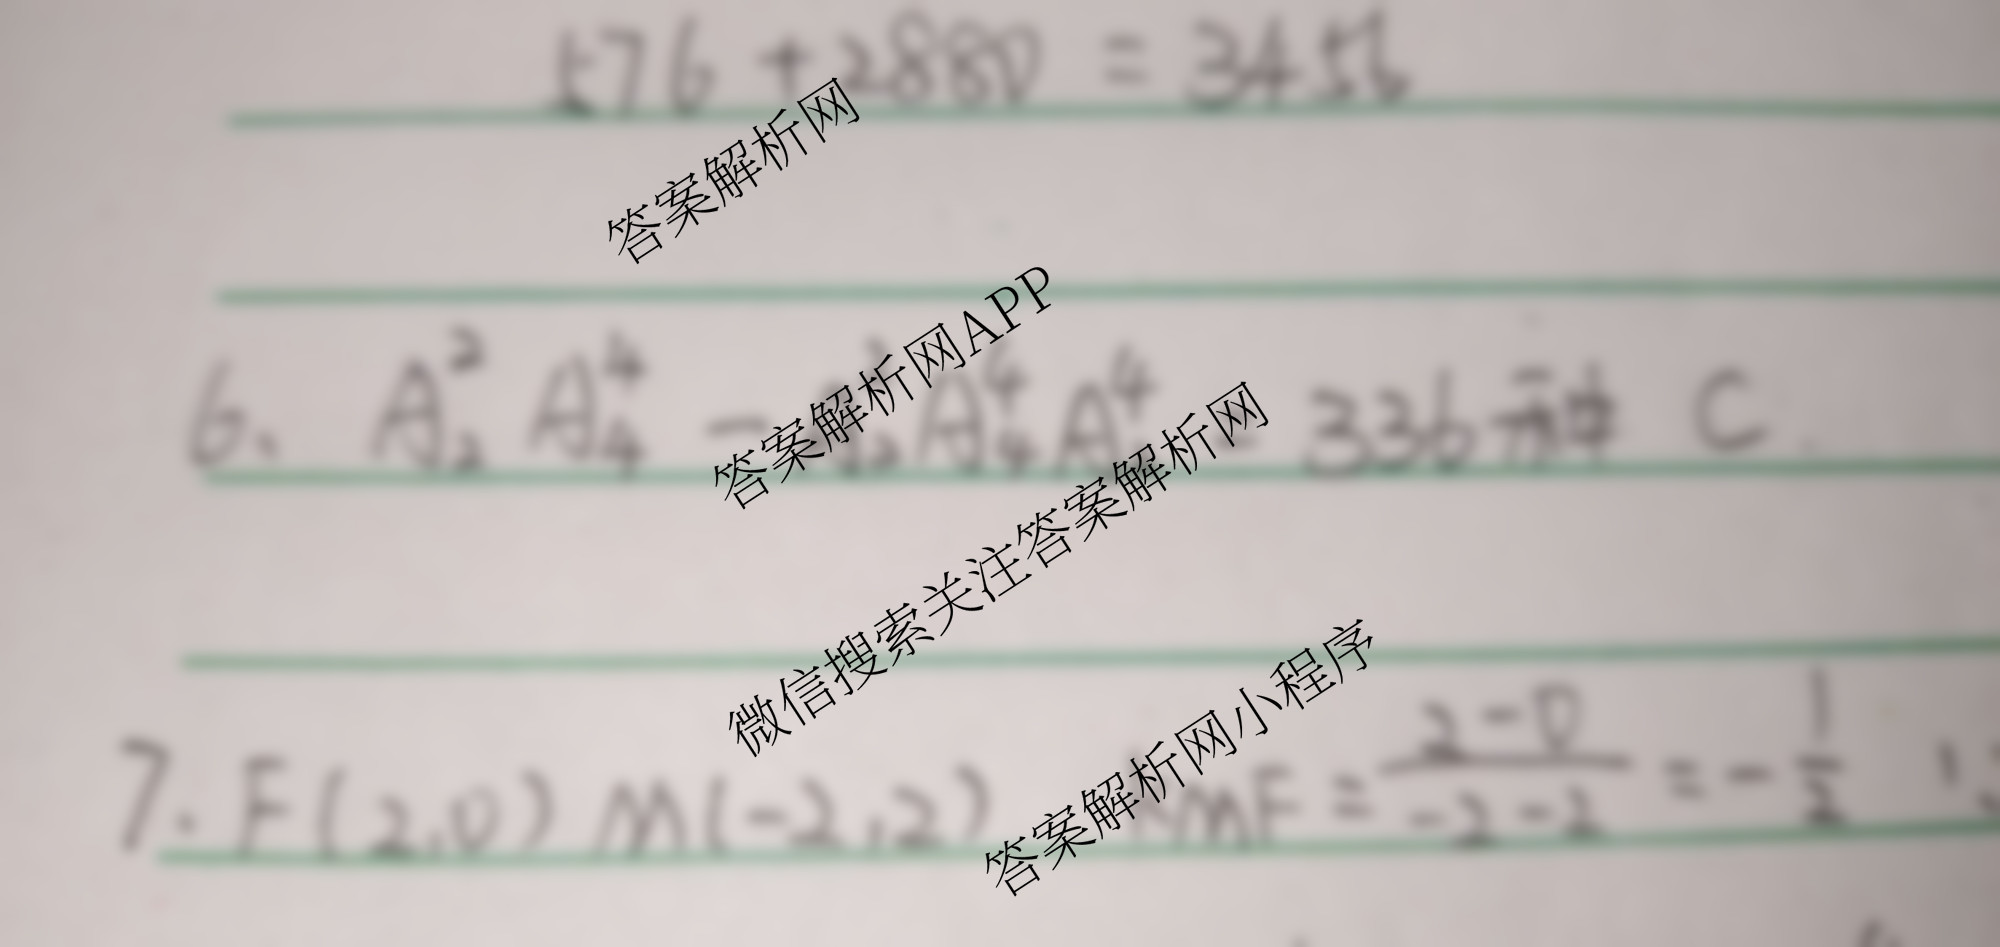 576 + 2880 = 3456
答案解析网
答案解析网APP
6、 A₂² A₄⁴ - A₄⁴ A⁴ 336种 C
微信搜索关注答案解析网
答案解析网小程序
7. F(2,0) M(-2,2) MF = (2-0)/(-2-2) = -1/2